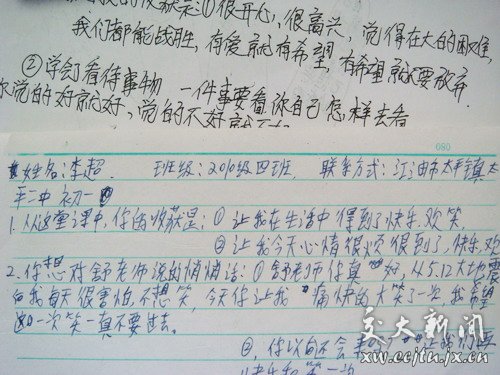 收获是:①很开心,很高兴,觉得在大的困难,
我们都能战胜,有爱就有希望,有希望就要放弃.
②学会看待事物 一件事要看你自己怎样去看
觉的好就好,觉的不好就不
080
姓名:李超. 班级:2010级四班. 联系方式:江油市太平镇太
平二中 初一
1.从这堂课中,你的收获是:①让我在生活中得到了快乐,欢笑.
②让我今天心情很 很到了,快乐,欢
2.你想对舒老师说的悄悄话:①舒老师你真 好,从5.12大地震
后我每天很害怕.不想笑,今天你让我 痛快的大笑了一次,我希望
这一次笑一真不要过去。
②,你以后还会
快乐和第一次
交大新闻
xw.ccjtu.jx.cn